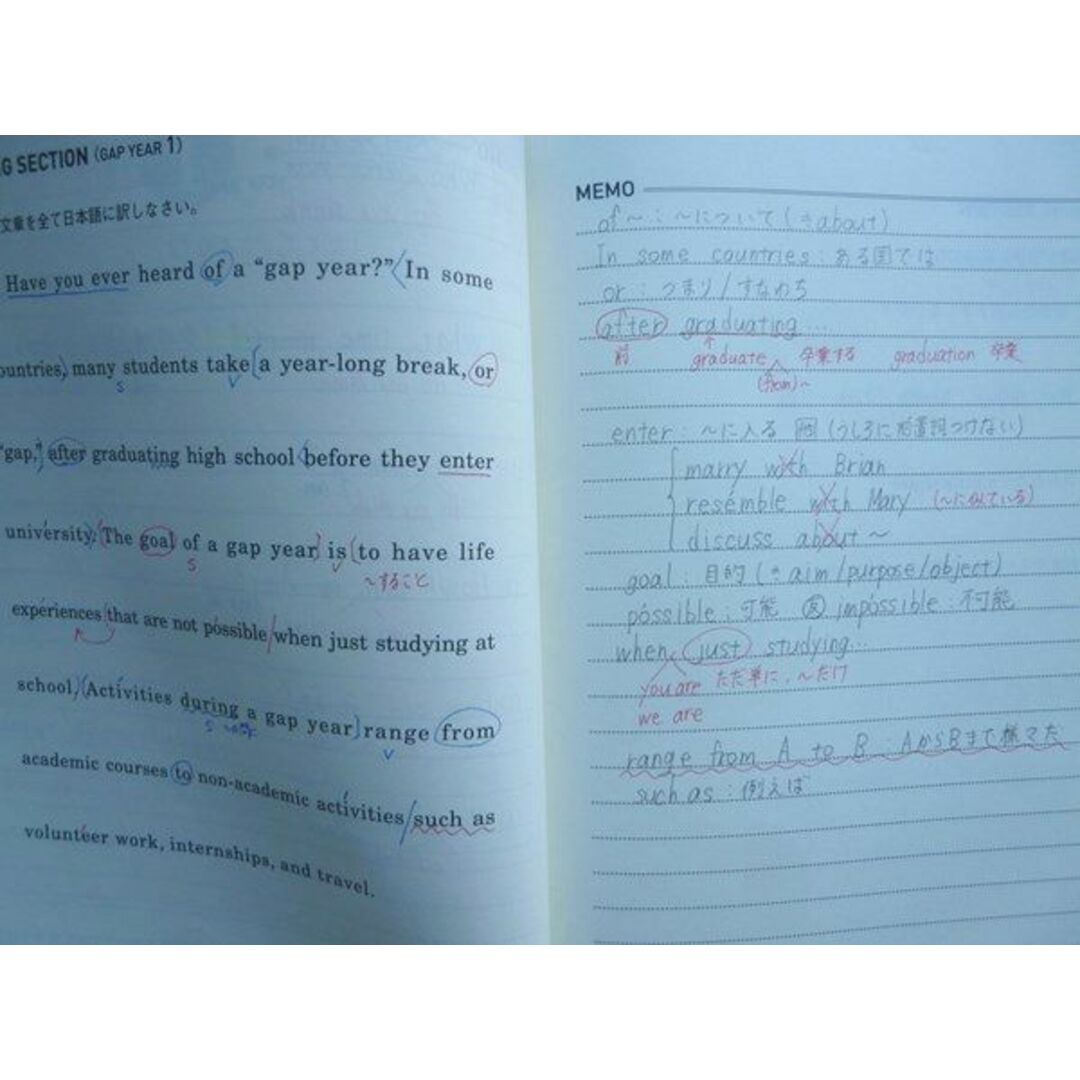 G SECTION (GAP YEAR 1)
文章を全て日本語に訳しなさい。
Have you ever heard of a “gap year?” In some
ountries, many students take a year-long break, or
S V
“gap,” after graduating high school before they enter
university. The goal of a gap year is to have life
S V ~すること
experiences that are not possible when just studying at
school. Activities during a gap year range from
S V
academic courses to non-academic activities such as
volunteer work, internships, and travel.
MEMO
of ~ : ~について (≒about)
In some countries : ある国では
or : つまり/すなわち
after graduating...
前 graduate 卒業する graduation 卒業
(from)~
enter : ~に入る 他 (うしろに前置詞つけない)
marry with Brian
resemble with Mary (~に似ている)
discuss about ~
goal : 目的 (≒ aim/purpose/object)
possible : 可能 反 impossible : 不可能
when just studying...
you are ただ単に、~だけ
we are
range from A to B : AからBまで様々だ
such as : 例えば